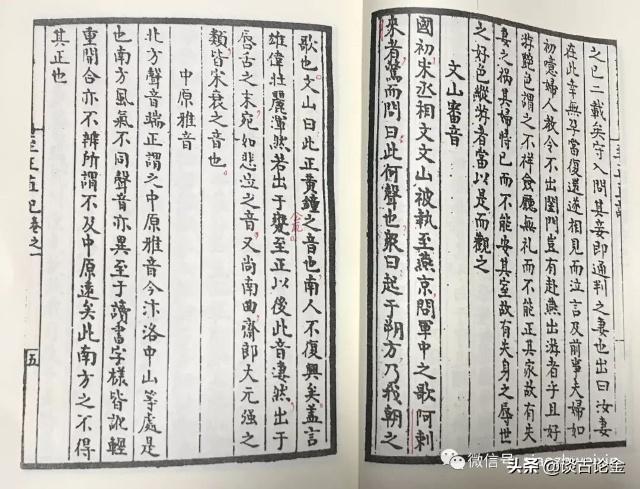 之已二載矣守入問其妻即通判之妻也出曰汝妻
在此幸無辱當復還遂相見而泣言及前事夫婦如
初噫婦人教令不出閨門豈有赴燕出游者乎且好
游艶色謂之不祥僉廳無礼而不能正其家故有失
妻之禍其婦恃已而不能安其室故有失身之辱世
之好色縱游者當以是而觀之
文山審音
國初宋丞相文文山被執至燕京聞軍中之歌阿剌
來者驚而問曰此何聲也衆曰起于朔方乃我朝之
歌也文山曰此正黃鐘之音也南人不復興矣蓋言
雄偉壯麗渾然若出于甕至正以後此音凄然出于
唇舌之末宛如悲泣之音又尚南曲齋郎大元強之
類皆宋衰之音也
中原雅音
北方聲音端正謂之中原雅音今汴洛中山等處是
也南方風氣不同聲音亦異至于讀書字樣皆訛輕
重開合亦不辨所謂不及中原遠矣此南方之不得
其正也
至正直記卷之一
五
微信号
头条 @谈古论金